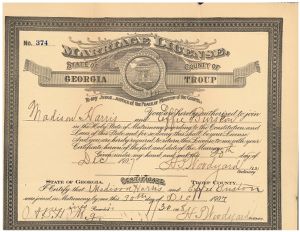 No. 374
MARRIAGE LICENSE.
STATE OF COUNTY OF
GEORGIA TROUP
To any Judge, Justice of the Peace or Minister of the Gospel.
Madison Harris and Effie Burston You are hereby authorized to join
in the Holy State of Matrimony according to the Constitution and
Laws of this State and for so doing this shall be your License.
And you are hereby required to return this License to me with your
Certificate hereon of the fact and date of the Marriage.
Given under my hand and seal this day of
Dec 1907
STATE OF GEORGIA, CERTIFICATE TROUP COUNTY.
I Certify that Madison Harris and Effie
were joined in Matrimony by me this day of Dec 1907
Recorded